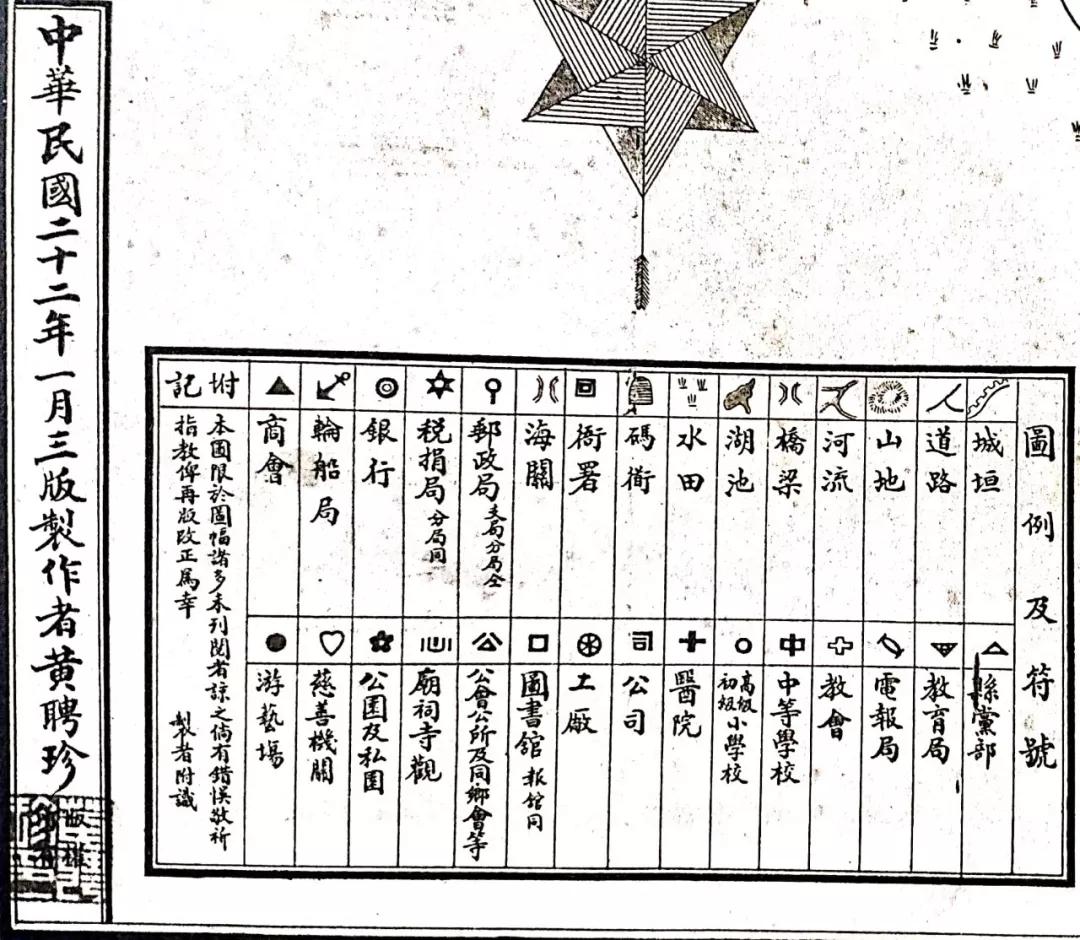 圖例及符號
城垣
道路
山地
河流
橋梁
湖池
水田
碼衕
衙署
海關
郵政局 支局分局仝
稅捐局 分局同
銀行
輪船局
商會
縣黨部
教育局
電報局
教會
中等學校
高級初級小學校
醫院
公司
工廠
圖書舘 報舘同
公會公所及同鄉會等
廟祠寺觀
公園及私園
慈善機關
游藝場
坿記
本圖限於圖幅諸多未列閱者諒之倘有錯悞敬祈
指教俾再版改正爲幸 製者附識
中華民國二十二年一月三版製作者黃聘珍
版權
所有